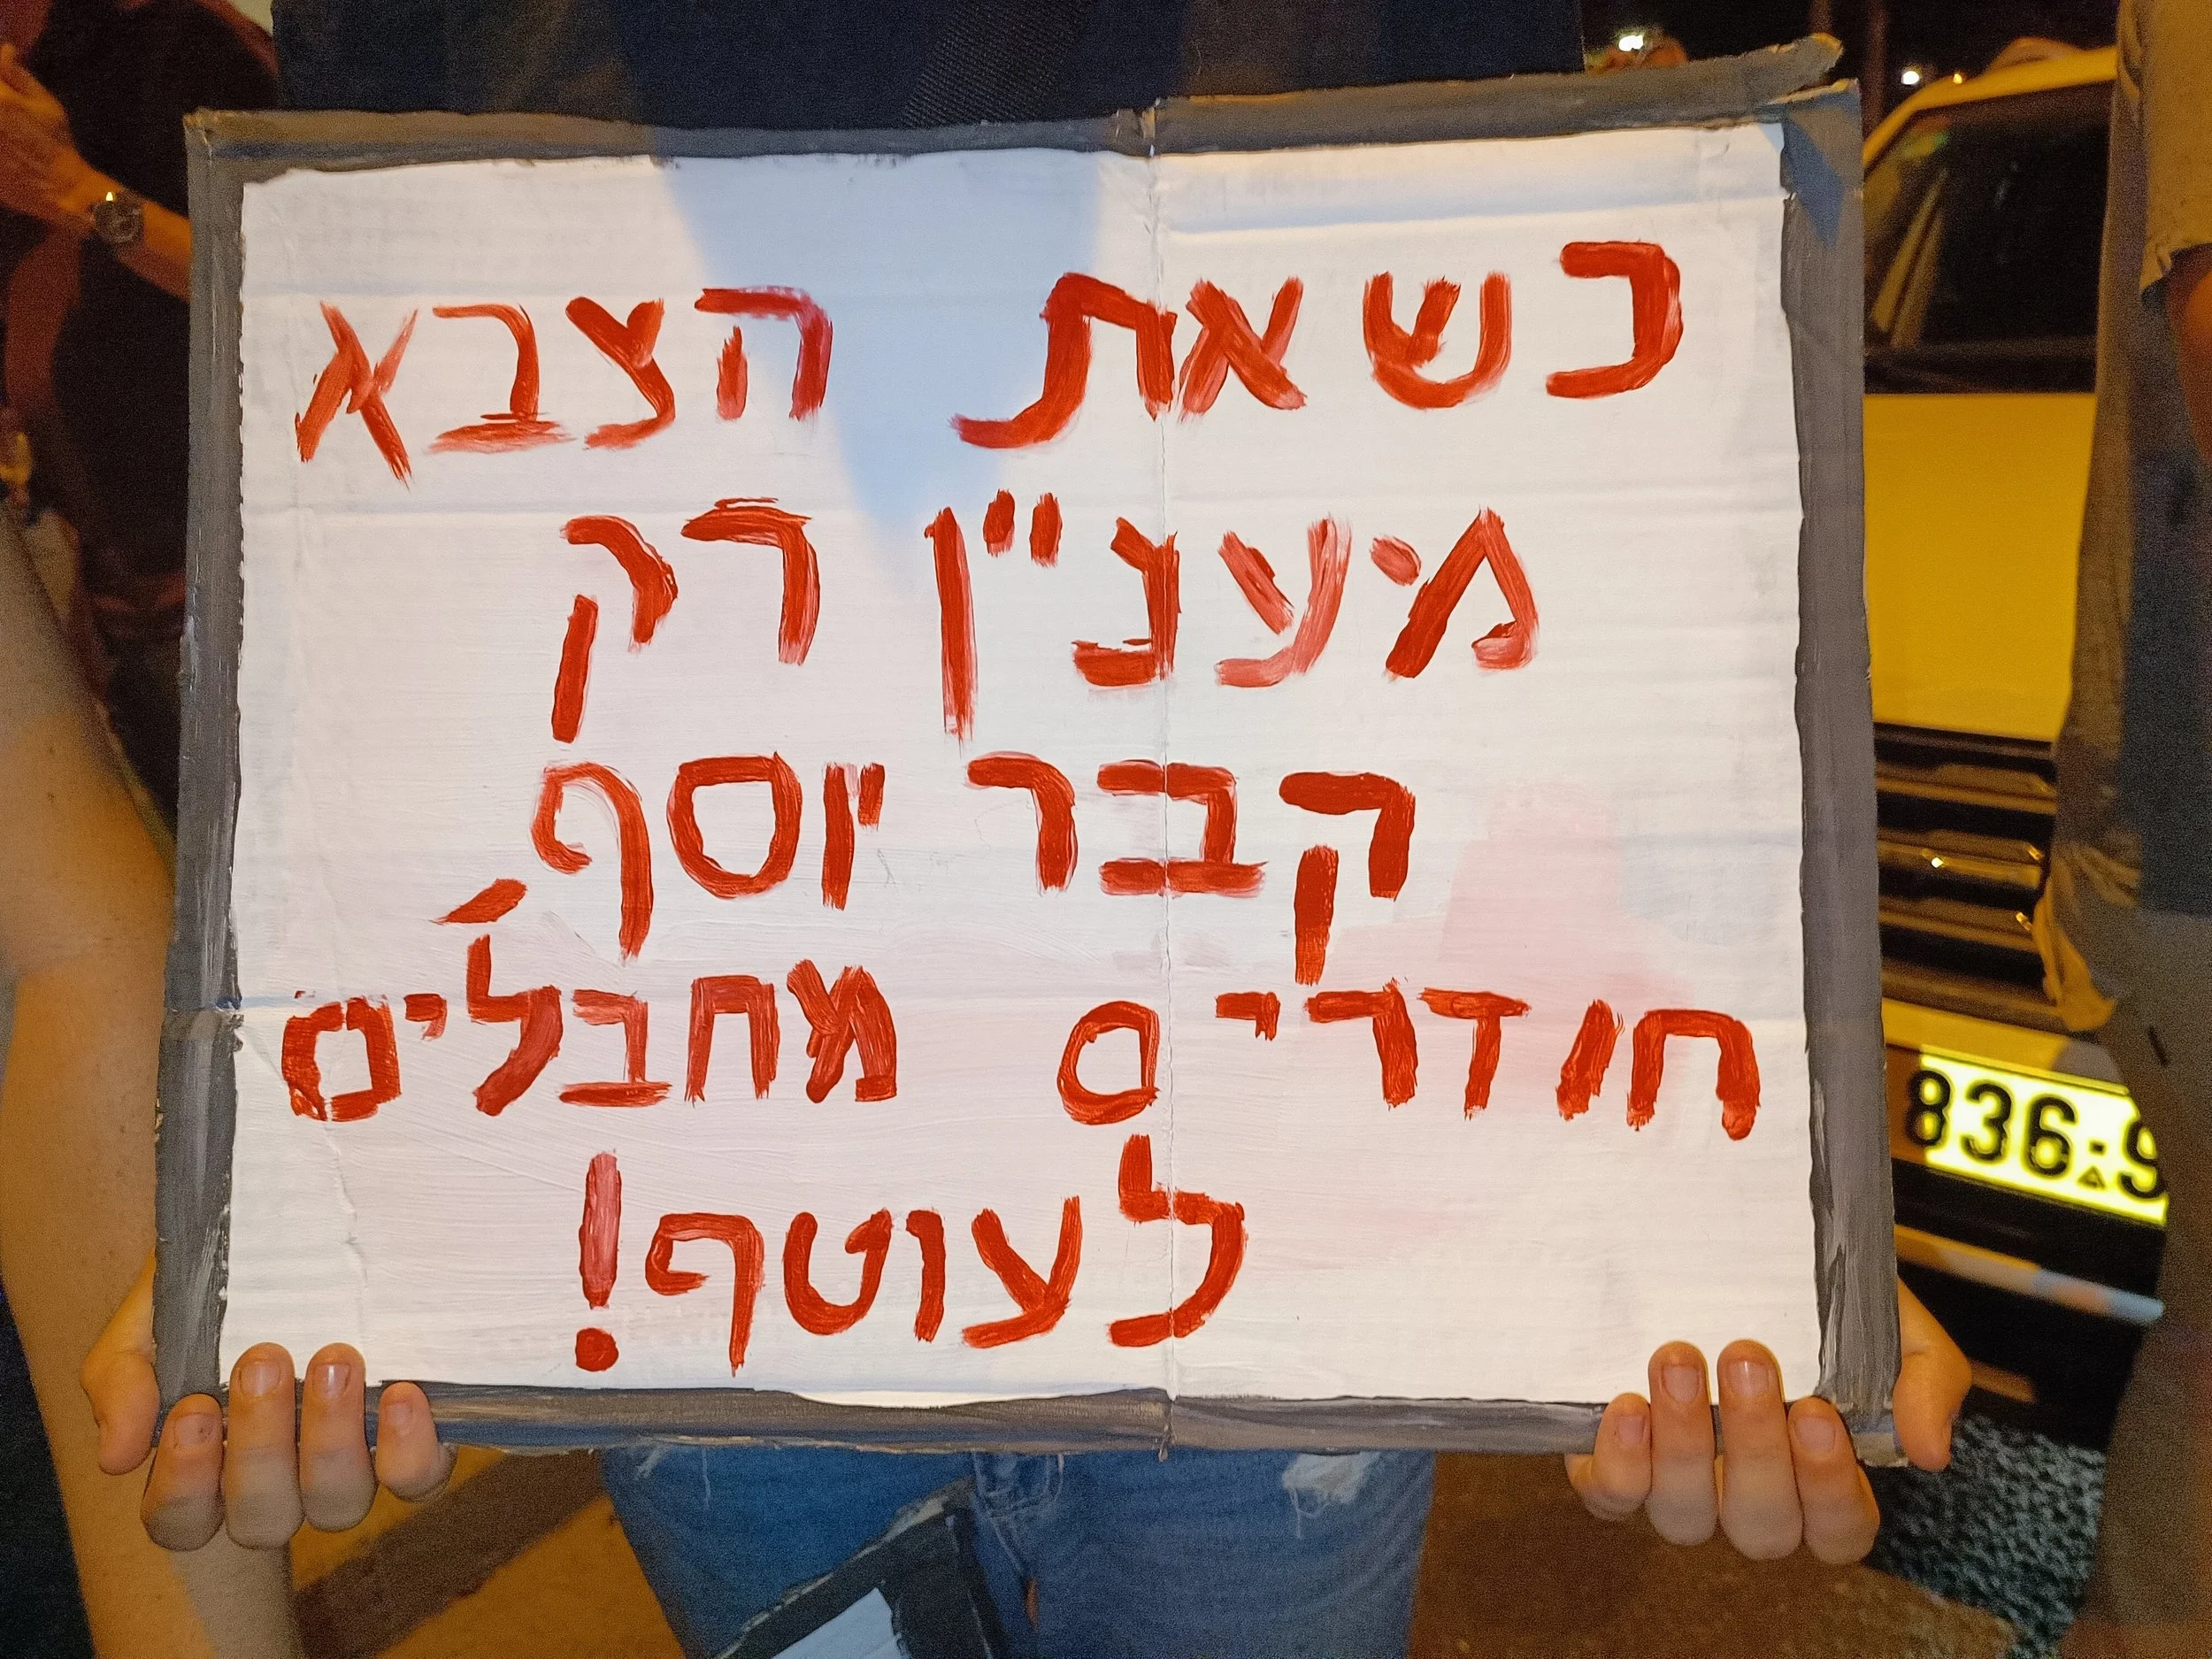 כשאת הצבא
מעניין רק
קבר יוסף,
חודרים מחבלים
לעוטף!
836·9